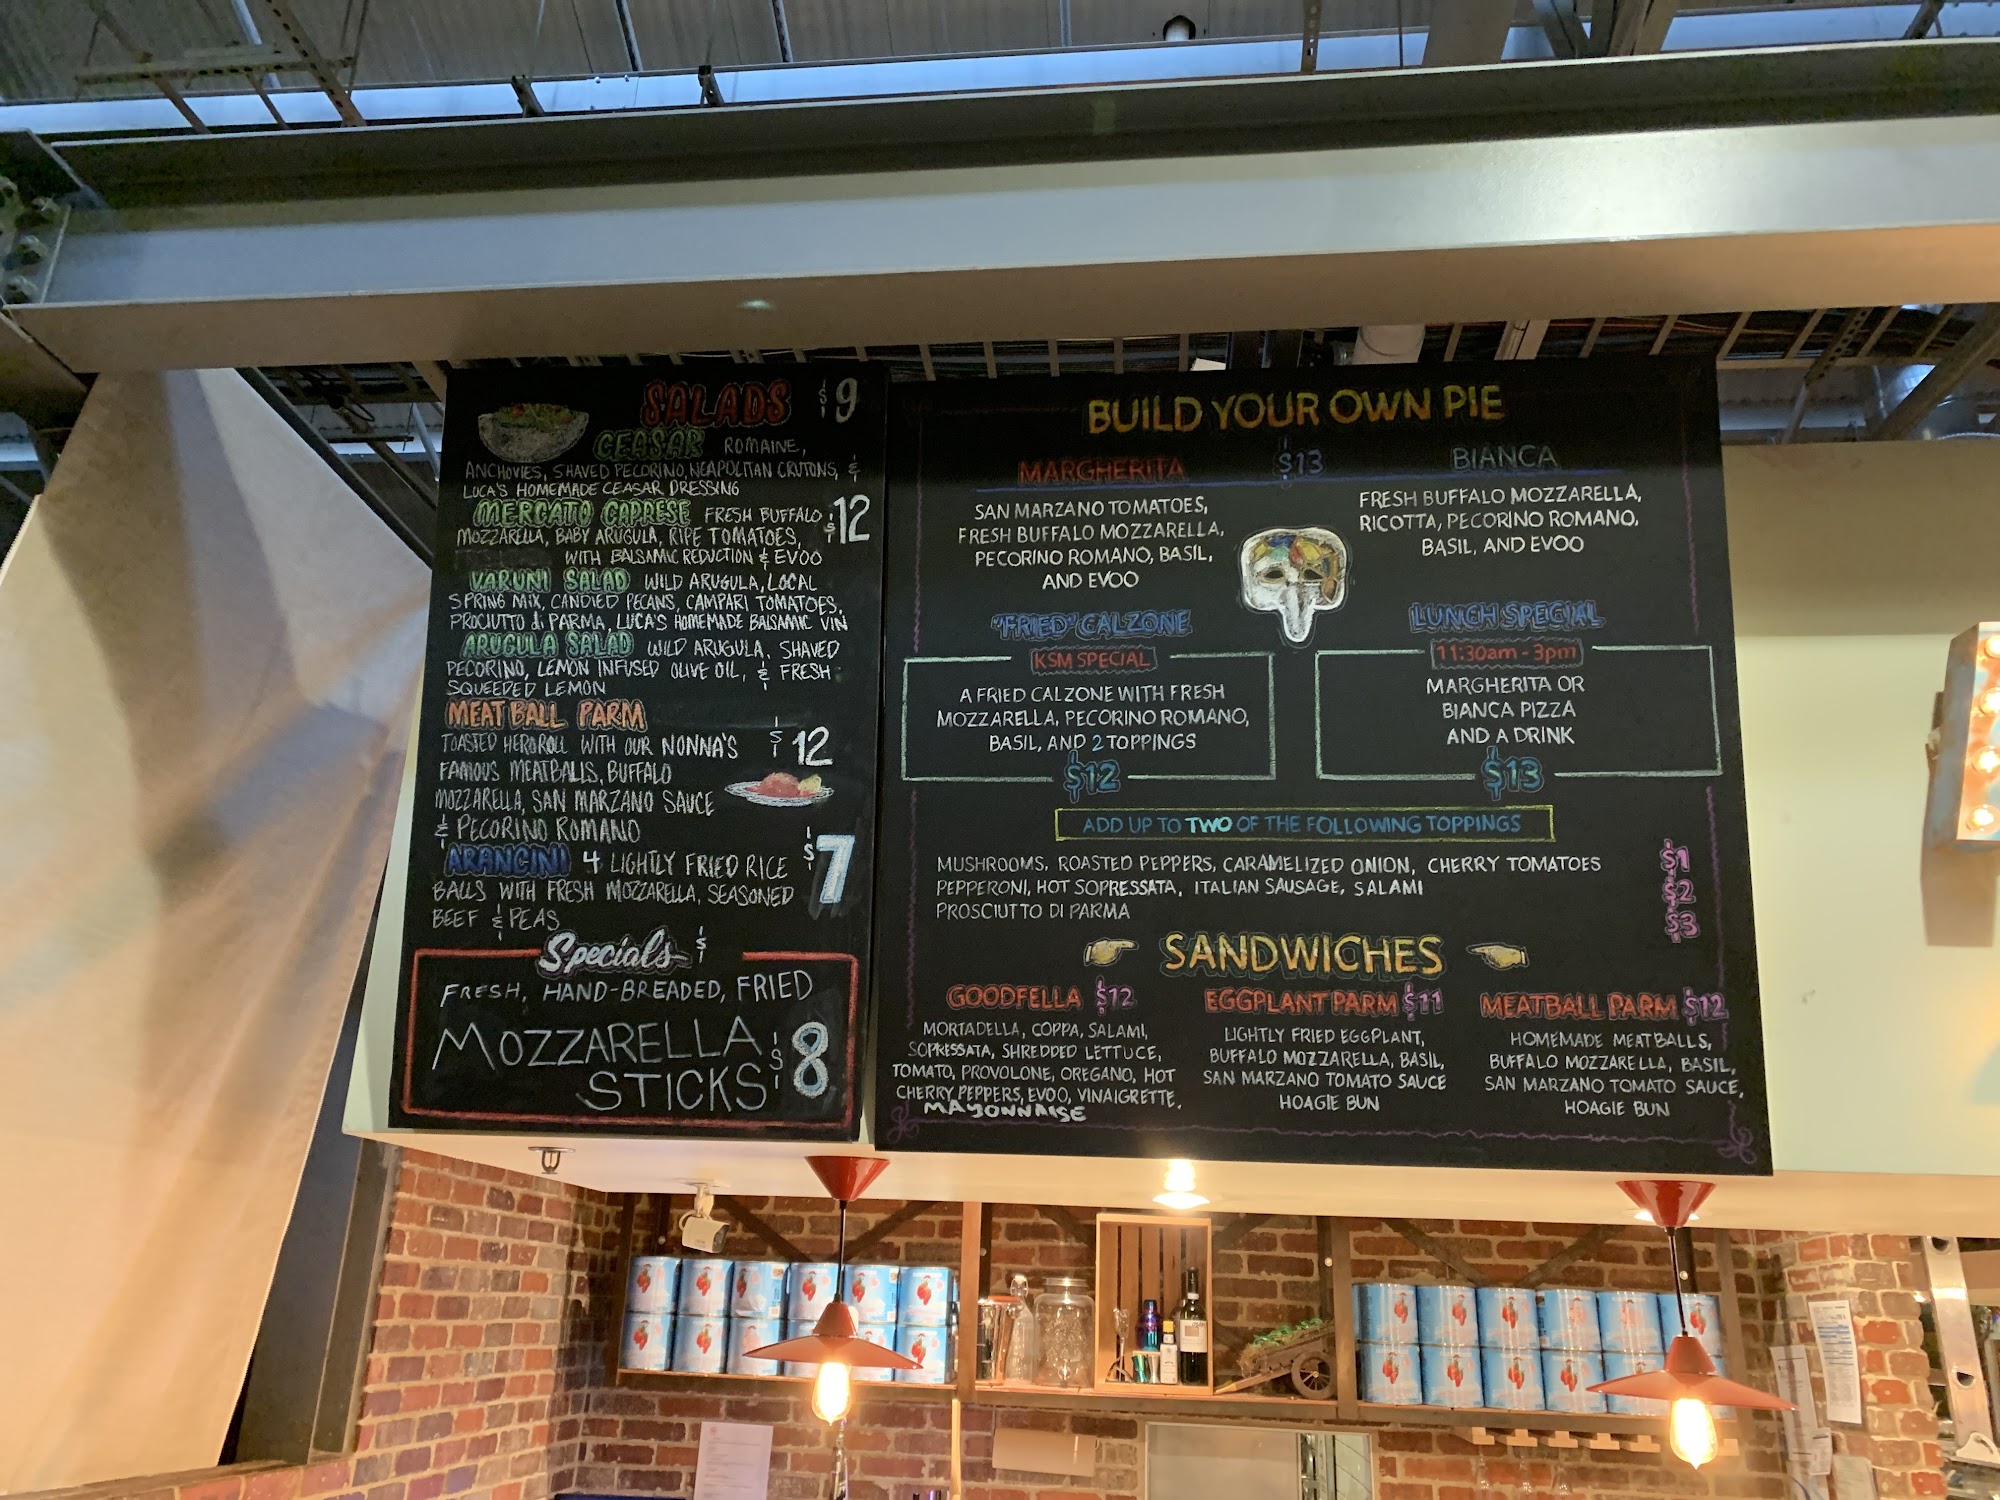 SALADS $9
CEASAR ROMAINE,
ANCHOVIES, SHAVED PECORINO, NEAPOLITAN CRUTONS, &
LUCA'S HOMEMADE CEASAR DRESSING
MERCATO CAPRESE FRESH BUFFALO $12
MOZZARELLA, BABY ARUGULA, RIPE TOMATOES,
WITH BALSAMIC REDUCTION & EVOO
VARUNI SALAD WILD ARUGULA, LOCAL
SPRING MIX, CANDIED PECANS, CAMPARI TOMATOES,
PROCIUTTO di PARMA, LUCA'S HOMEMADE BALSAMIC VIN
ARUGULA SALAD WILD ARUGULA, SHAVED
PECORINO, LEMON INFUSED OLIVE OIL, & FRESH
SQUEEDED LEMON
MEAT BALL PARM
TOASTED HERO ROLL WITH OUR NONNA'S $12
FAMOUS MEATBALLS, BUFFALO
MOZZARELLA, SAN MARZANO SAUCE
& PECORINO ROMANO
ARANCINI 4 LIGHTLY FRIED RICE $7
BALLS WITH FRESH MOZZARELLA, SEASONED
BEEF & PEAS
Specials $
FRESH, HAND-BREADED, FRIED
MOZZARELLA
STICKS $8
BUILD YOUR OWN PIE
MARGHERITA $13 BIANCA
SAN MARZANO TOMATOES,
FRESH BUFFALO MOZZARELLA,
PECORINO ROMANO, BASIL,
AND EVOO
FRESH BUFFALO MOZZARELLA,
RICOTTA, PECORINO ROMANO,
BASIL, AND EVOO
"FRIED" CALZONE
KSM SPECIAL
A FRIED CALZONE WITH FRESH
MOZZARELLA, PECORINO ROMANO,
BASIL, AND 2 TOPPINGS
$12
LUNCH SPECIAL
11:30am - 3pm
MARGHERITA OR
BIANCA PIZZA
AND A DRINK
$13
ADD UP TO TWO OF THE FOLLOWING TOPPINGS
MUSHROOMS, ROASTED PEPPERS, CARAMELIZED ONION, CHERRY TOMATOES $1
PEPPERONI, HOT SOPRESSATA, ITALIAN SAUSAGE, SALAMI $2
PROSCIUTTO DI PARMA $3
SANDWICHES
GOODFELLA $12
MORTADELLA, COPPA, SALAMI,
SOPRESSATA, SHREDDED LETTUCE,
TOMATO, PROVOLONE, OREGANO, HOT
CHERRY PEPPERS, EVOO, VINAIGRETTE,
MAYONNAISE
EGGPLANT PARM $11
LIGHTLY FRIED EGGPLANT,
BUFFALO MOZZARELLA, BASIL,
SAN MARZANO TOMATO SAUCE
HOAGIE BUN
MEATBALL PARM $12
HOMEMADE MEATBALLS,
BUFFALO MOZZARELLA, BASIL,
SAN MARZANO TOMATO SAUCE,
HOAGIE BUN